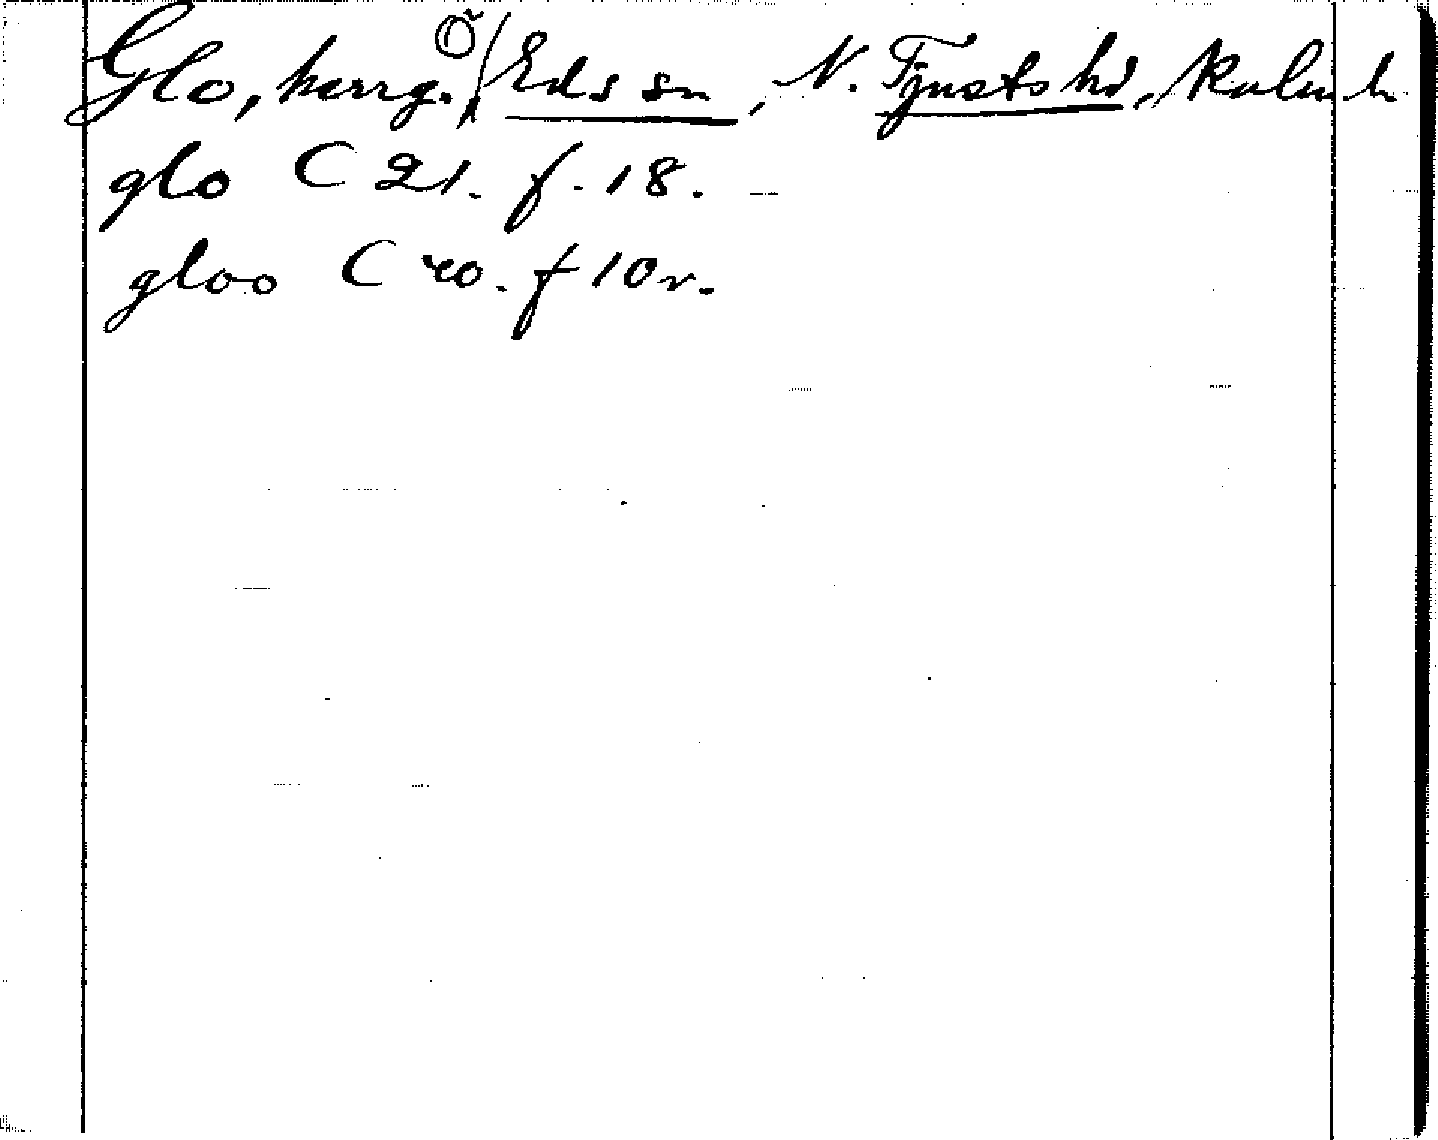 Glo, herrg. Ö/ Eds sn, N. Tjusts hd, Kalm. l.
glo C 21. f. 18.
gloo C 20. f 10v.